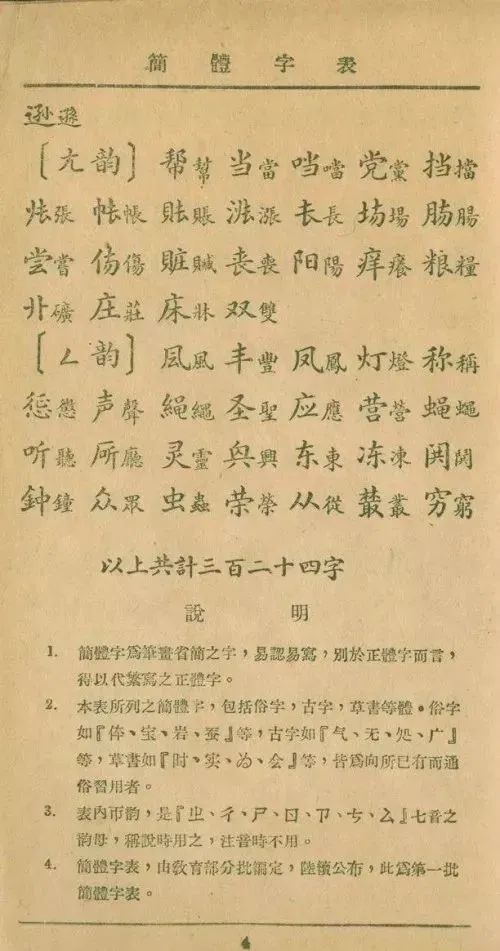 簡體字表
逊遜
〔ㄤ韵〕 帮幫 当當 噹 党黨 挡擋
張 帳 賬 漲 長 場 腸
尝嘗 傷 賍贓 丧喪 阳陽 痒癢 粮糧
卝礦 庄莊 床牀 双雙
〔ㄥ韵〕 凨風 丰豐 凤鳳 灯燈 称稱
惩懲 声聲 縄繩 圣聖 应應 营營 蝇蠅
听聽 廳 灵靈 興 东東 冻凍
鈡鐘 众眾 虫蟲 荣榮 从從 叢 穷窮
以上共計三百二十四字
說明
1. 簡體字爲筆畫省簡之字，易認易寫，別於正體字而言，
得以代繁寫之正體字。
2. 本表所列之簡體字，包括俗字，古字，草書等體。俗字
如『体、宝、岩、蚕』等，古字如『气、无、処、广』
等，草書如『时、实、为、会』等，皆爲向所已有而通
俗習用者。
3. 表內帀韵，是『ㄓ、ㄔ、ㄕ、ㄖ、ㄗ、ㄘ、ㄙ』七音之
韵母，稱說時用之，注音時不用。
4. 簡體字表，由敎育部分批編定，陸續公布，此爲第一批
簡體字表。
4